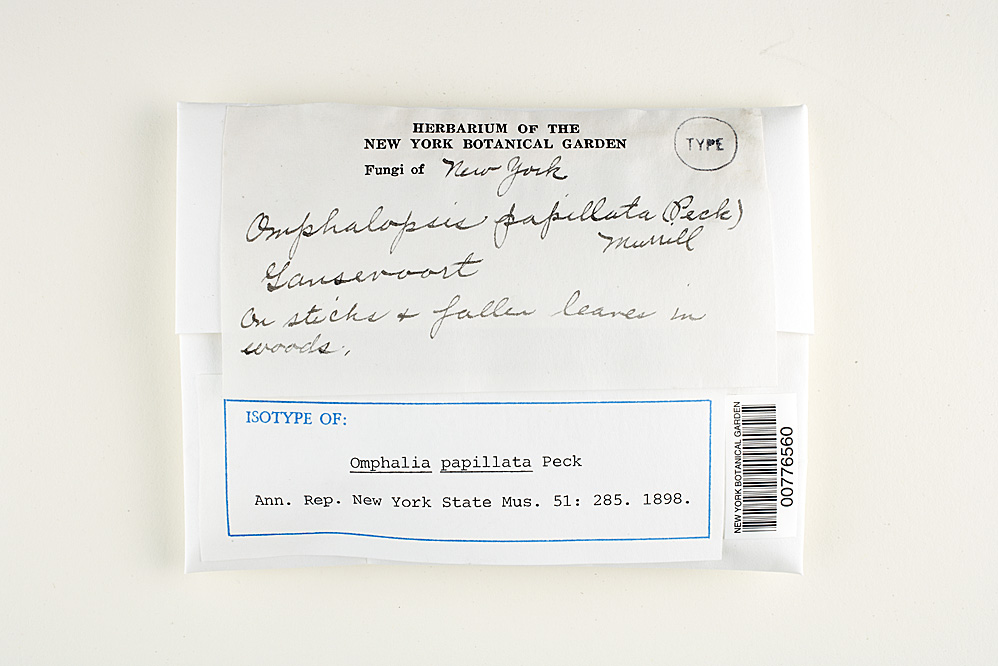 HERBARIUM OF THE
NEW YORK BOTANICAL GARDEN
TYPE
Fungi of New York
Omphalopsis papillata (Peck)
Murrill
Gansevoort
On sticks & fallen leaves in
woods.
ISOTYPE OF:
Omphalia papillata Peck
Ann. Rep. New York State Mus. 51: 285. 1898.
NEW YORK BOTANICAL GARDEN
00776560